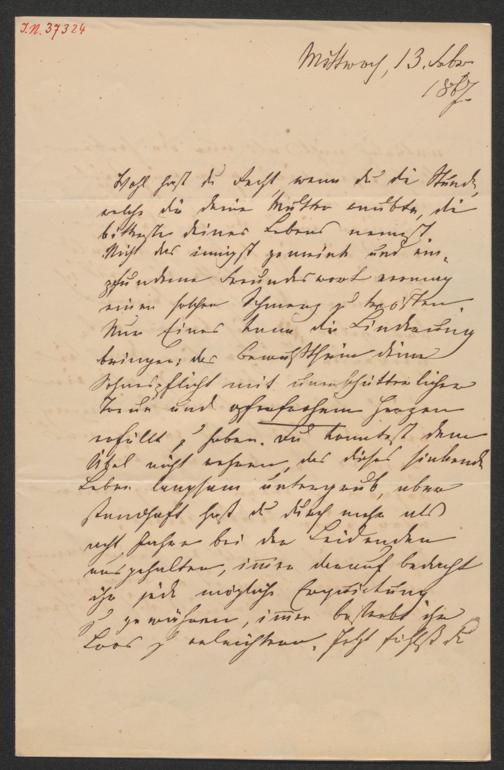 I.N. 37324
Mittwoch, 13. Febr
1867.
Wohl hast du Recht, wenn du die Stunde,
welche dir deine Mutter raubte, die
bitterste deines Lebens nennst.
Nicht das innigst gemeinte und em-
pfundene Freundeswort vermag
einen solchen Schmerz zu trösten.
Nur Eines kann dir Linderung
bringen; das Bewußtsein deine
Sohnespflicht mit unerschütterlicher
Treue und opferfrohem Herzen
erfüllt zu haben. Du konntest dem
Übel nicht wehren, das dieses sinkende
Leben langsam untergrub, aber
standhaft hast du durch mehr als
acht Jahre bei der Leidenden
ausgehalten, immer darauf bedacht
ihr jede mögliche Erquickung
zu gewähren, immer bestrebt ihr
Loos zu erleichtern. Jetzt fühlst du